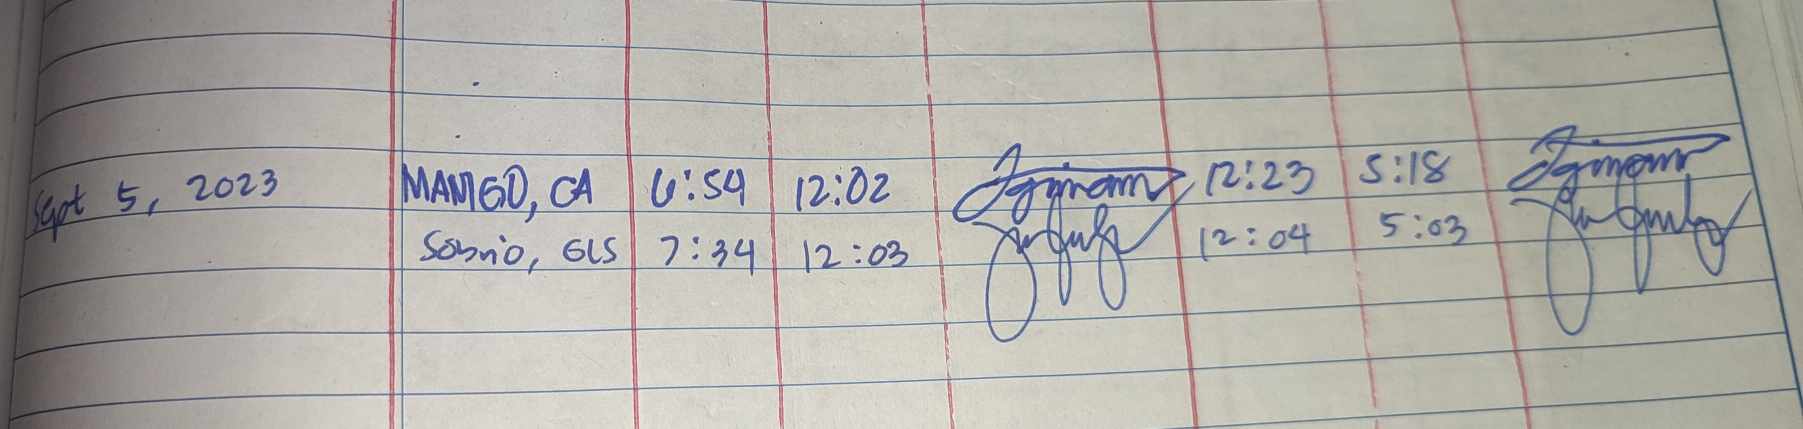 Sept 5, 2023 MANGO, CA 6:54 12:02 12:23 5:18
Sobrio, GLS 7:34 12:03 12:04 5:03